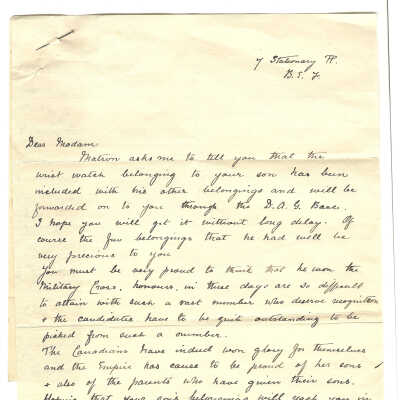 7 Stationary H.
B. E. F.
Dear Madam
Matron asks me to tell you that the
wrist watch belonging to your son has been
included with his other belongings and will be
forwarded on to you through the D.A.G Base.
I hope you will get it without long delay. Of
course the few belongings that he had will be
very precious to you
You must be very proud to think that he won the
Military Cross, honours, in these days are so difficult
to attain with such a vast number who deserve recognition
& the candidates have to be quite outstanding to be
picked from such a number.
The Canadians have indeed won glory for themselves
and the Empire has cause to be proud of her sons
& also of the parents who have given their sons.
that your son's belongings will reach you